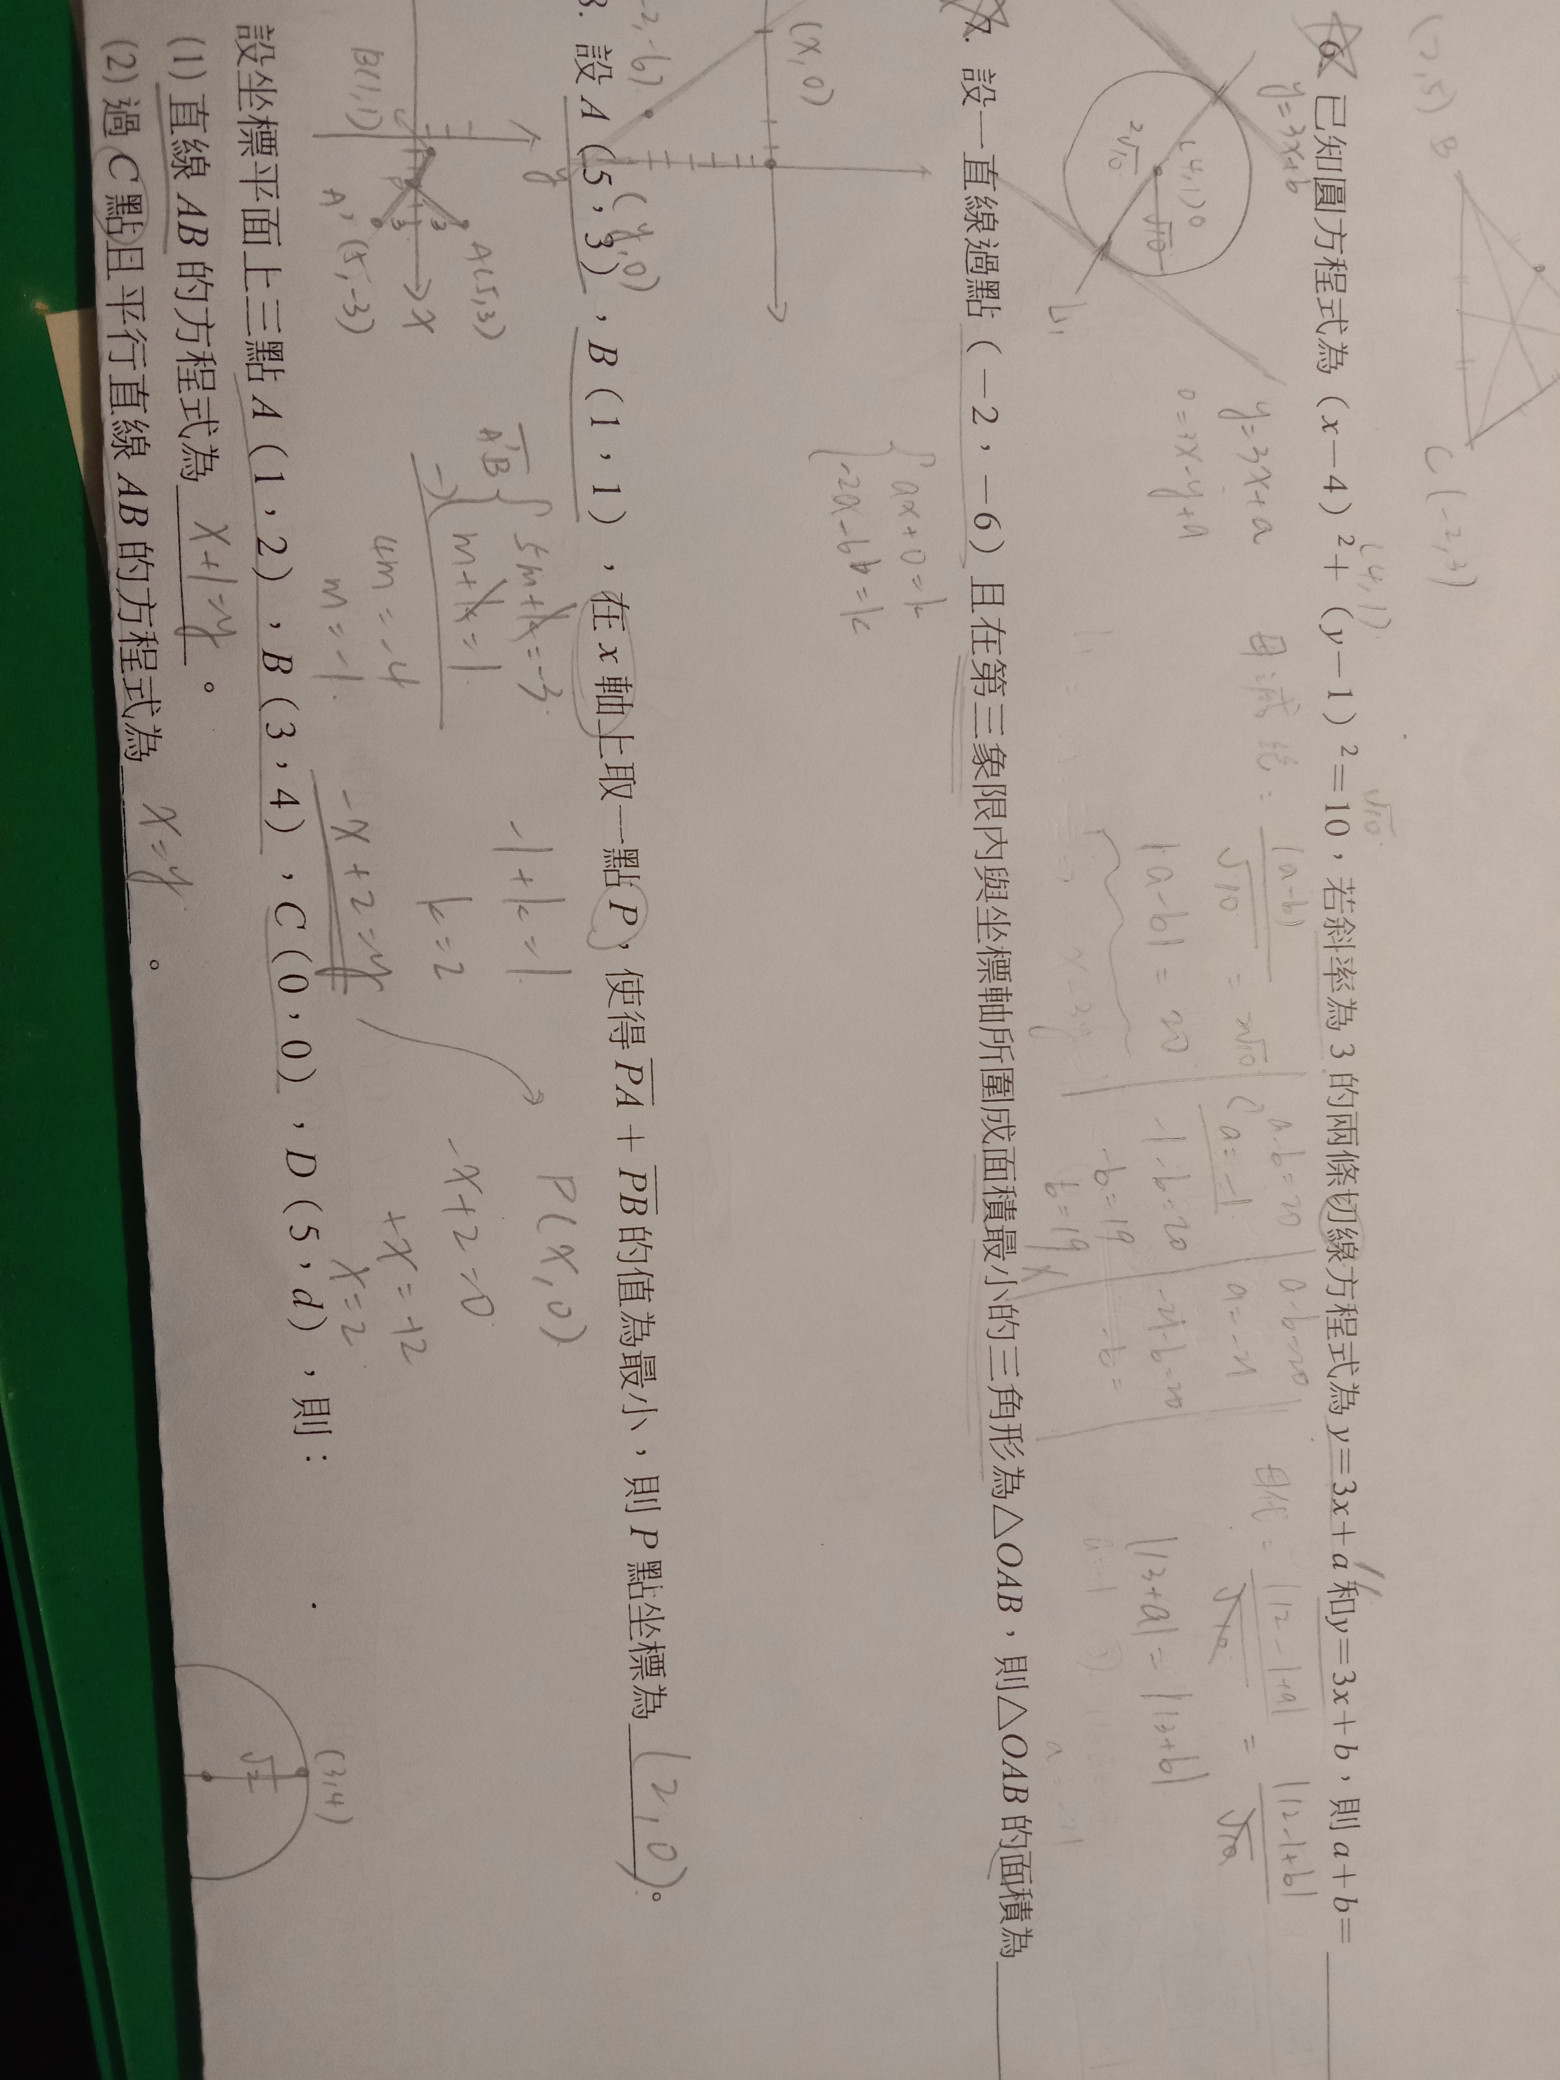 (7,5) B
C(-2,3)
6. 已知圓方程式為(x-4)²+(y-1)²=10，若斜率為3的兩條切線方程式為y=3x+a和y=3x+b，則a+b=
(4,1)
√10
y=3x+b
(4,1)0
√10
2√10
L₁
y=3x+a
0=3x-y+a
|a-b|
√10
=2√10
|a-b|=20
a-b=20
a=-1
-1-b=20
-b=19
b=19
a-b=20
a=-21
-21-b=20
-b=
|12-1+a|
√10
=
|12-1+b|
√10
|13+a|=|13+b|
7. 設一直線過點(-2，-6)且在第三象限內與坐標軸所圍成面積最小的三角形為△OAB，則△OAB的面積為
(x,0)
-2,-6)
(y,0)
y
{ax+0=k
-2a-6b=k
8. 設A(5，3)，B(1，1)，在x軸上取一點P，使得PA+PB的值為最小，則P點坐標為(2,0)。
B(1,1)
A(5,3)
x
A'(5,-3)
A'B {5m+k=-3
-) m+k=1
4m=-4
m=-1
-1+k=1
k=2
-x+2=y
P(x,0)
-x+2=0
+x=+2
x=2
設坐標平面上三點A(1，2)，B(3，4)，C(0，0)，D(5，d)，則：
(1)直線AB的方程式為 x+1=y 。
(2)過C點且平行直線AB的方程式為 x=y 。
(3,4)
√2